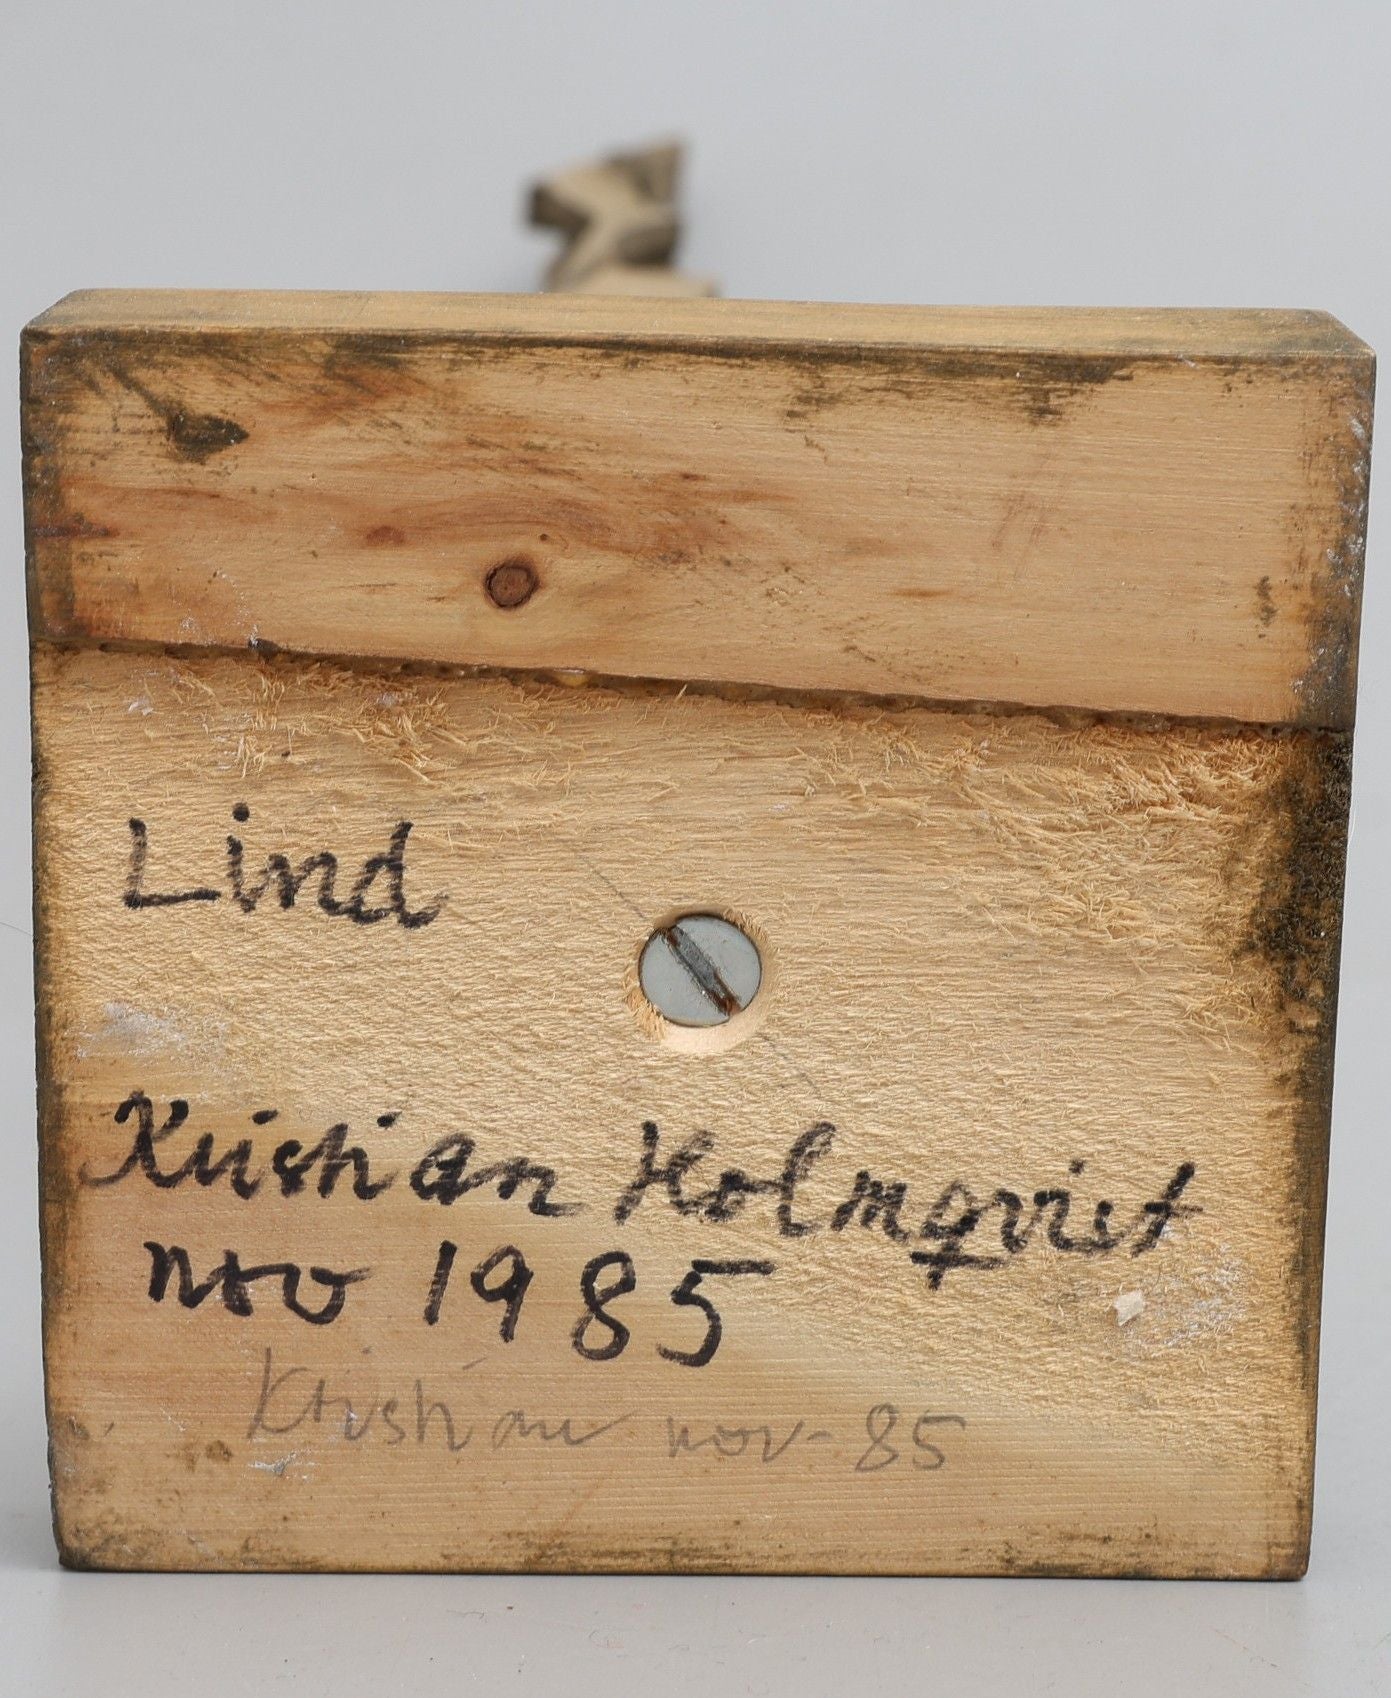 Lind
Kristian Holmqvist
nov 1985
Kristian nov-85